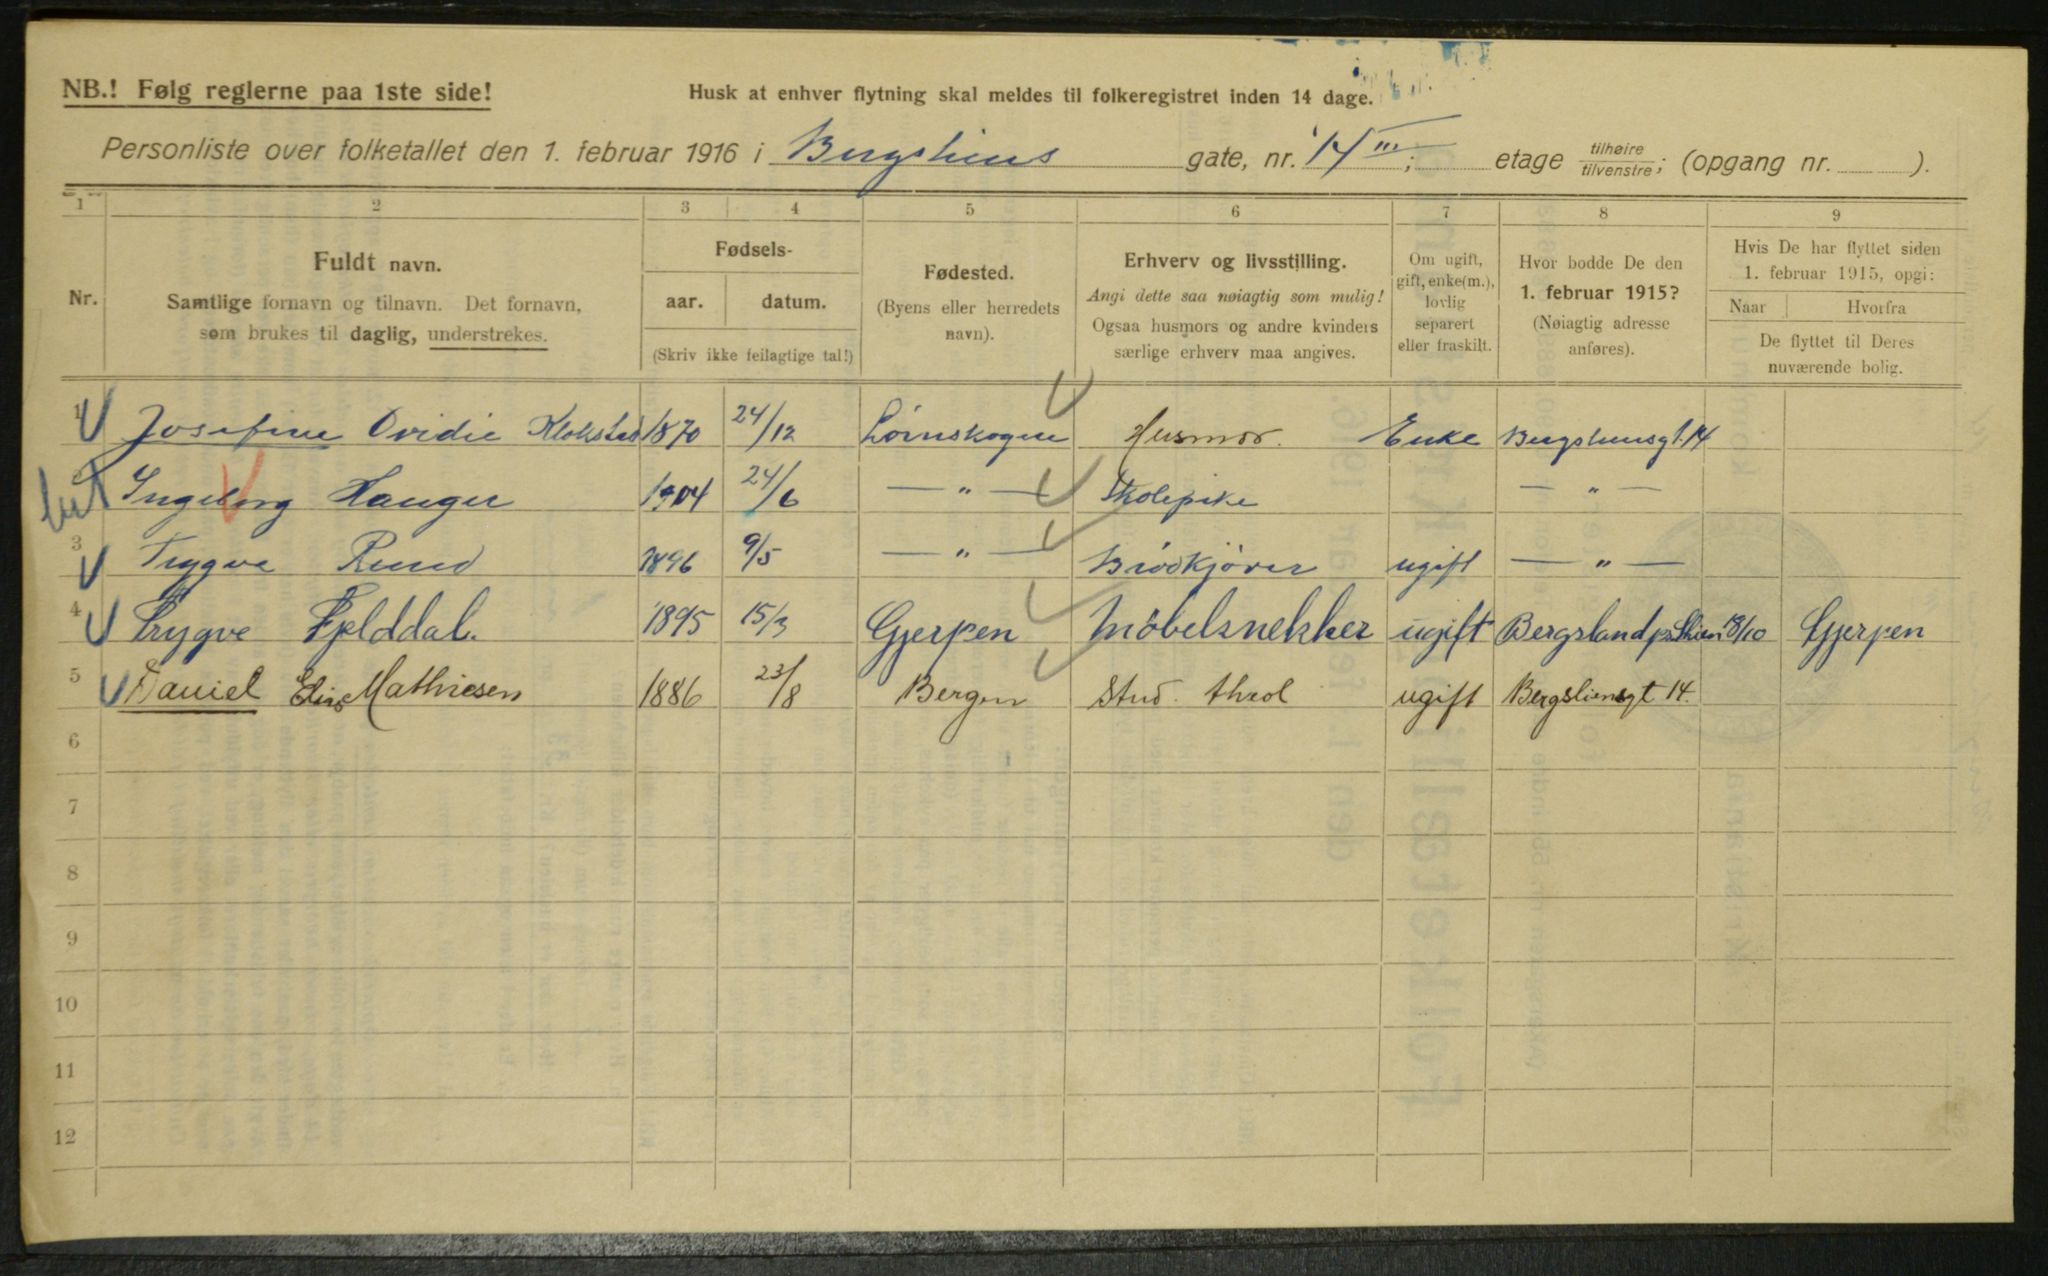 NB.! Følg reglerne paa 1ste side!
Husk at enhver flytning skal meldes til folkeregistret inden 14 dage.
Personliste over folketallet den 1. februar 1916 i Bergsliens gate, nr. 14 III; etage tilhøire/tilvenstre; (opgang nr. ).
1 2 3 4 5 6 7 8 9
Nr.
Fuldt navn.
Samtlige fornavn og tilnavn. Det fornavn,
som brukes til daglig, understrekes.
Fødsels-
aar. datum.
(Skriv ikke feilagtige tal!)
Fødested.
(Byens eller herredets
navn).
Erhverv og livsstilling.
Angi dette saa nøiagtig som mulig!
Ogsaa husmors og andre kvinders
særlige erhverv maa angives.
Om ugift,
gift, enke(m.),
lovlig
separert
eller fraskilt.
Hvor bodde De den
1. februar 1915?
(Nøiagtig adresse
anføres).
Hvis De har flyttet siden
1. februar 1915, opgi:
Naar Hvorfra
De flyttet til Deres
nuværende bolig.
1 Josefine Ovidie Klokstad 1870 24/12 Lørnskogen Husmor. Enke Bergsliensgt. 14
2 Ingeborg Hauger 1904 24/6 — " — Skolepike — " —
3 Trygve Ruud 1896 9/5 — " — Brødkjører ugift — " —
4 Trygve Fjelddal. 1895 15/3 Gjerpen Möbelsnekker ugift Bergsland pr. Skien 18/10 Gjerpen
5 Daniel Elias Mathiesen 1886 23/8 Bergen Stud. theol ugift Bergsliensgt 14.
6
7
8
9
10
11
12